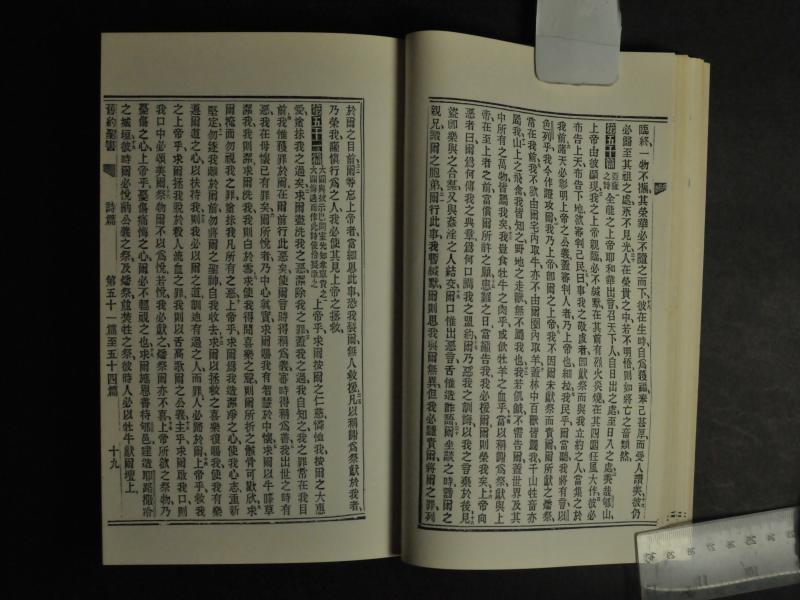 臨終一物不攜其榮華必不隨之而下彼在生時自為穫福奉己甚厚而受人讚美彼仍
必歸至其祖之處永不見光人在榮貴之中若不明悟則如將亡之畜類然
第五十篇 亞薩之詩 全能之上帝耶和華出言召天下人自日出之處至日入之處美哉郇山
上帝由彼顯現我之上帝親臨必不緘默在其前有烈火炎燒在其四圍狂風大作彼必
布告上天布告下地欲審判己民曰事我之敬虔者卽獻祭而與我立約之人當集之於
我前諸天必彰明上帝之公義蓋審判人者乃上帝也細拉我民乎爾當聽我將有言以
色列乎我今作證攻爾我乃上帝卽爾之上帝我不因爾未獻祭而責爾爾所獻之燔祭
常在我前我不欲由爾宅內取牛亦不由爾圈內取羊蓋林中百獸皆屬我千山牲畜亦
屬我山上之飛禽我皆知之野地之走獸無不屬我也我若飢餓不需告爾蓋世界及其
中所有之萬物皆屬我矣我豈食牡牛之肉乎或飲牡羊之血乎當以稱謝為祭獻與上
帝在至上者之前當償爾所許之願患難之日當籲告我我必援爾爾則榮我矣上帝向
惡者曰爾爲何傳我之典章爲何口講我之盟約爾乃惡我之訓誨以我之言棄於後見
盜卽樂與之合謀又與姦淫之人結交爾口惟出惡言舌惟造詐語爾坐談之時謗爾之
親兄讟爾之胞弟爾行此事我暫緘默爾則思我與爾無異但我必譴責爾將爾之罪列
於爾之目前爾等忘上帝者當細思此事恐我裂爾無人救援凡以稱謝為祭獻於我者
乃榮我謹愼行為之人我必使其見上帝之拯救
第五十一篇 大闢與拔示巴同室先知拿單責之大闢悔過而作此詩使伶長歌之 上帝乎求爾按爾之仁慈憐恤我按爾之大惠
愛塗抹我之過矣求爾盡洗我之惡潔除我之罪蓋我之過我自知之我之罪常在我目
前我惟獲罪於爾在爾前行此惡矣使爾言時得稱爲義審時得稱爲善我出世之時有
惡我在母懷已有罪矣爾所悅者乃中心眞實求爾賜我有智慧於中懷求爾以牛膝草
潔我我則潔求爾洗我我則白於雪求使我得聞喜樂之聲則爾所折之骸骨可歡欣求
爾掩面勿視我之罪塗抹我凡所有之惡上帝乎求爾爲我造潔淨之心使我心志重新
堅定勿逐我離於爾前勿將爾之聖神自我收去求爾以拯救之喜樂復賜我使我有樂
遵爾道之心以扶持我則我必以爾之道訓迪有過之人而罪人必歸於爾上帝乎救我
之上帝乎求爾拯我脫於殺人流血之罪我則以舌高歌爾之公義主乎求爾啟我口則
我口中必頌美爾祭物爾不以爲悅若悅我必獻之燔祭爾亦不喜上帝所欲之祭物乃
憂傷之心上帝乎憂傷痛悔之心爾必不輕視之也求爾施恩善待郇邑建造耶路撒冷
之城垣彼時爾必悅納公義之祭及燔祭並焚牲之祭彼時人必以牡牛獻爾壇上
舊約聖書 詩篇 第五十一篇至五十四篇 十九